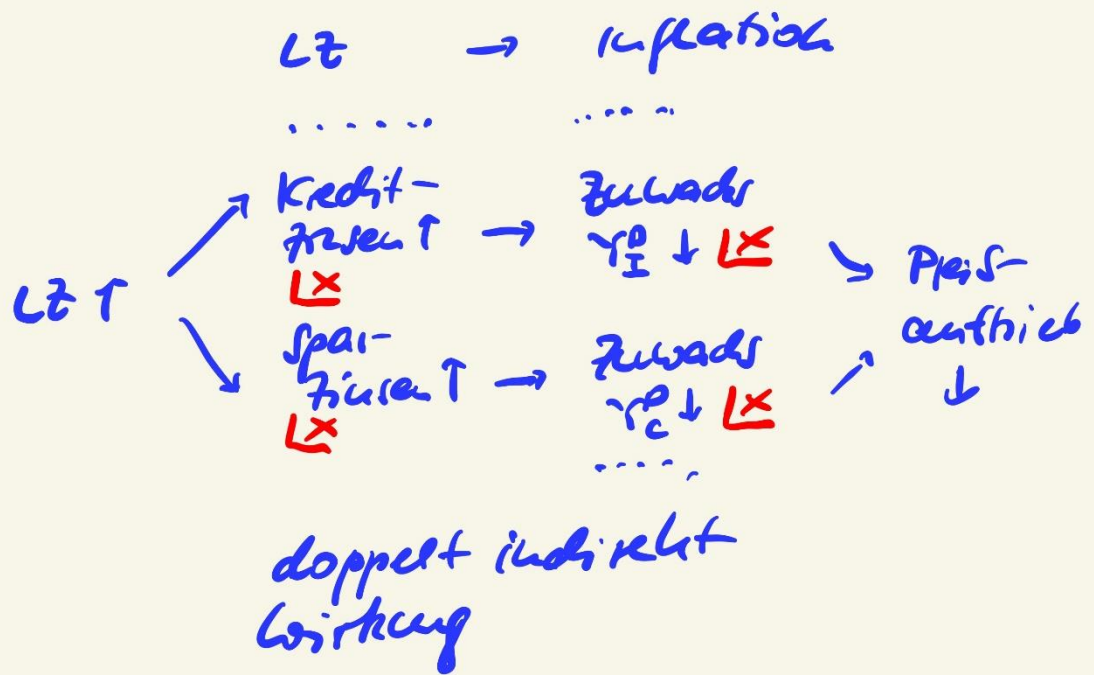 LZ → Inflation
Kredit-
zinsen ↑ → Zuwachs
Y^D_I ↓
LZ ↑
Preis-
auftrieb
↓
Spar-
zinsen ↑ → Zuwachs
Y^D_C ↓
doppelt indirekt
Wirkung